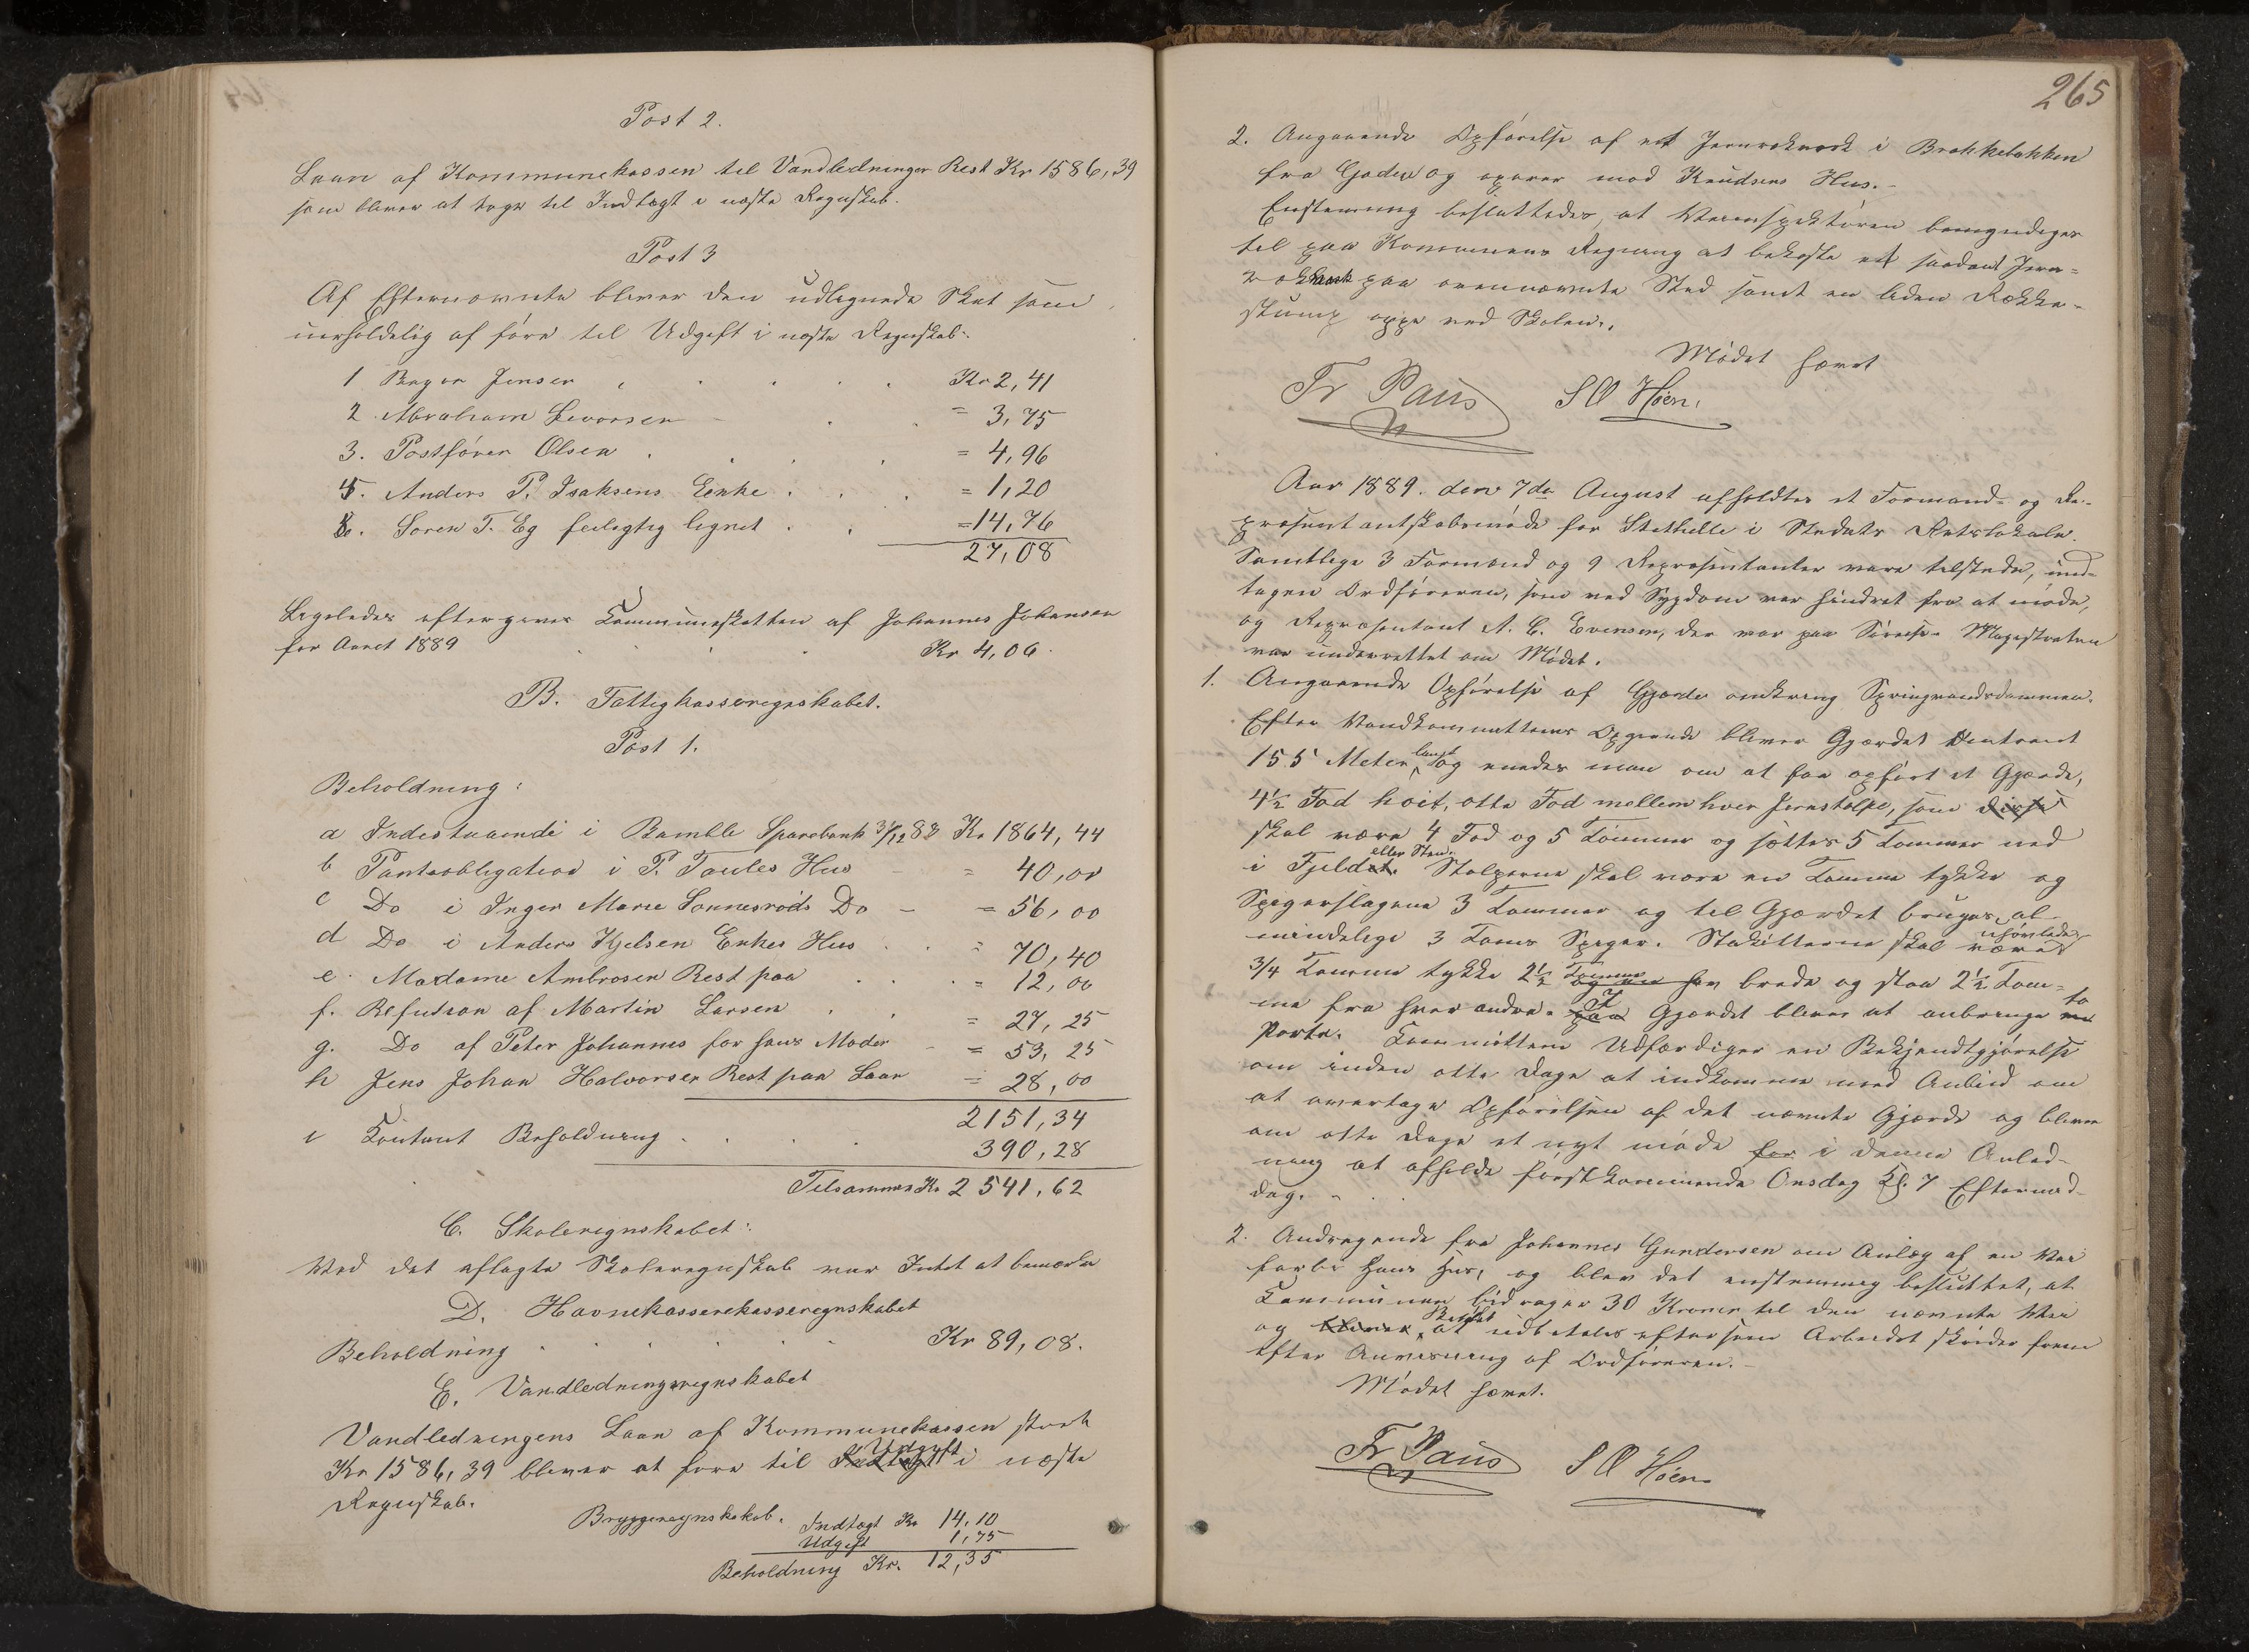 Post 2.
Laan af Kommunekassen til Vandledninger Rest Kr 1586,39
som bliver at tage til Indtægt i næste Regnskab.
Post 3
Af Efternævnte bliver den udlignede Skat som
uerholdelig at føre til Udgift i næste Regnskab:
1 Jensen Kr 2,41
2 Abraham Levorsen = 3,75
3. Postfører Olsen = 4,96
4. Anders P. Isaksens Enke = 1,20
5. Søren T. Eg feilagtig lignet = 14,76
27,08
Ligeledes eftergives Kommuneskatten af Johannes Johansen
for Aaret 1889 Kr 4,06.
B. Fattigkasseregnskabet.
Post 1.
Beholdning:
a Indestaaende i Bamble Sparebank 31/12 88 Kr 1864,44
b Panteobligation i P. Hus = 40,00
c Do i Inger Marie Sonnesrøds Do = 56,00
d Do i Anders Kjelsen Enkes Hus = 70,40
e. Madame Ambrosen Rest paa = 12,00
f. Refusion af Martin Larsen = 27,25
g. Do af Peter Johannes for hans Moder = 53,25
h Jens Johan Halvorsen Rest paa Laan = 28,00
2151,34
i Kontant Beholdning 390,28
Tilsammen Kr 2541,62
C. Skoleregnskabet:
Ved det aflagte Skoleregnskab var Intet at bemærke
D. Havnekassekasseregnskabet
Beholdning Kr 89,08.
E. Vandledningsregnskabet
Vandledningens Laan af Kommunekassen stort
Kr 1586,39 bliver at føre til Udgift i næste
Regnskab.
Bryggeregnskab. Indtægt Kr 14,10
Udgift 1,75
Beholdning Kr. 12,35
265
2. Angaaende Opførelse af et Jernrækværk i Brækkebakken
fra Gaden og opover mod Knudsens Hus.
Enstemmig besluttedes, at Veiinspektøren bemyndiges
til paa Kommunens Regning at bekoste et saadant Jern-
rækværk paa ovennævnte Sted samt en liden Række-
stump oppe ved Skolen.
Mødet hævet
Fr Paus S O Høen.
Aar 1889. den 7de August afholdtes et Formand- og Re-
præsentantskabsmøde for Stathelle i Stedets Retslokale.
Samtlige 3 Formænd og 9 Repræsentanter vare tilstede, und-
tagen Ordføreren, som ved Sygdom var hindret fra at møde,
og Repræsentant A. C. Evensen, der var paa Sørejse. Magistraten
var underrettet om Mødet.
1. Angaaende Opførelse af Gjerde omkring Springvandsdammen.
Efter Vandkommitteens Opgivende bliver Gjærdet omtrent
155 Meter langt og enedes man om at faa opført et Gjærde,
4½ Fod høit, otte Fod mellem hver Jernstolpe, som disse
skal være 4 Fod og 5 Tommer og sættes 5 Tommer ned
i Fjeld eller Sten. Stolperne skal være en Tomme tykke og
Spigerslagene 3 Tommer og til Gjærdet bruges al-
mindelige 3 Toms Spiger. Stakitterne skal være uhøvlede
3/4 Tomme tykke 2½ Tomme brede og staa 2½ Tom-
me fra hverandre. I Gjærdet bliver at anbringe to
Porte. Kommitteen Udfærdiger en Bekjendtgjørelse
om inden otte Dage at indkomme med Anbud om
at overtage Opførelsen af det nævnte Gjærde og bliver
om otte Dage et nyt møde for i denne Anled-
ning at afholde førstkommende Onsdag Kl. 7 Eftermid-
dag.
2. Andragende fra Johannes Gundersen om Anlæg af en Vei
forbi Hans Hus, og blev det enstemmig besluttet, at
Kommunen bidrager 30 Kroner til den nævnte Vei
og bliver Beløbet at udbetales eftersom Arbeidet skrider frem
efter Anvisning af Ordføreren.
Mødet hævet.
Fr Paus S O Høen